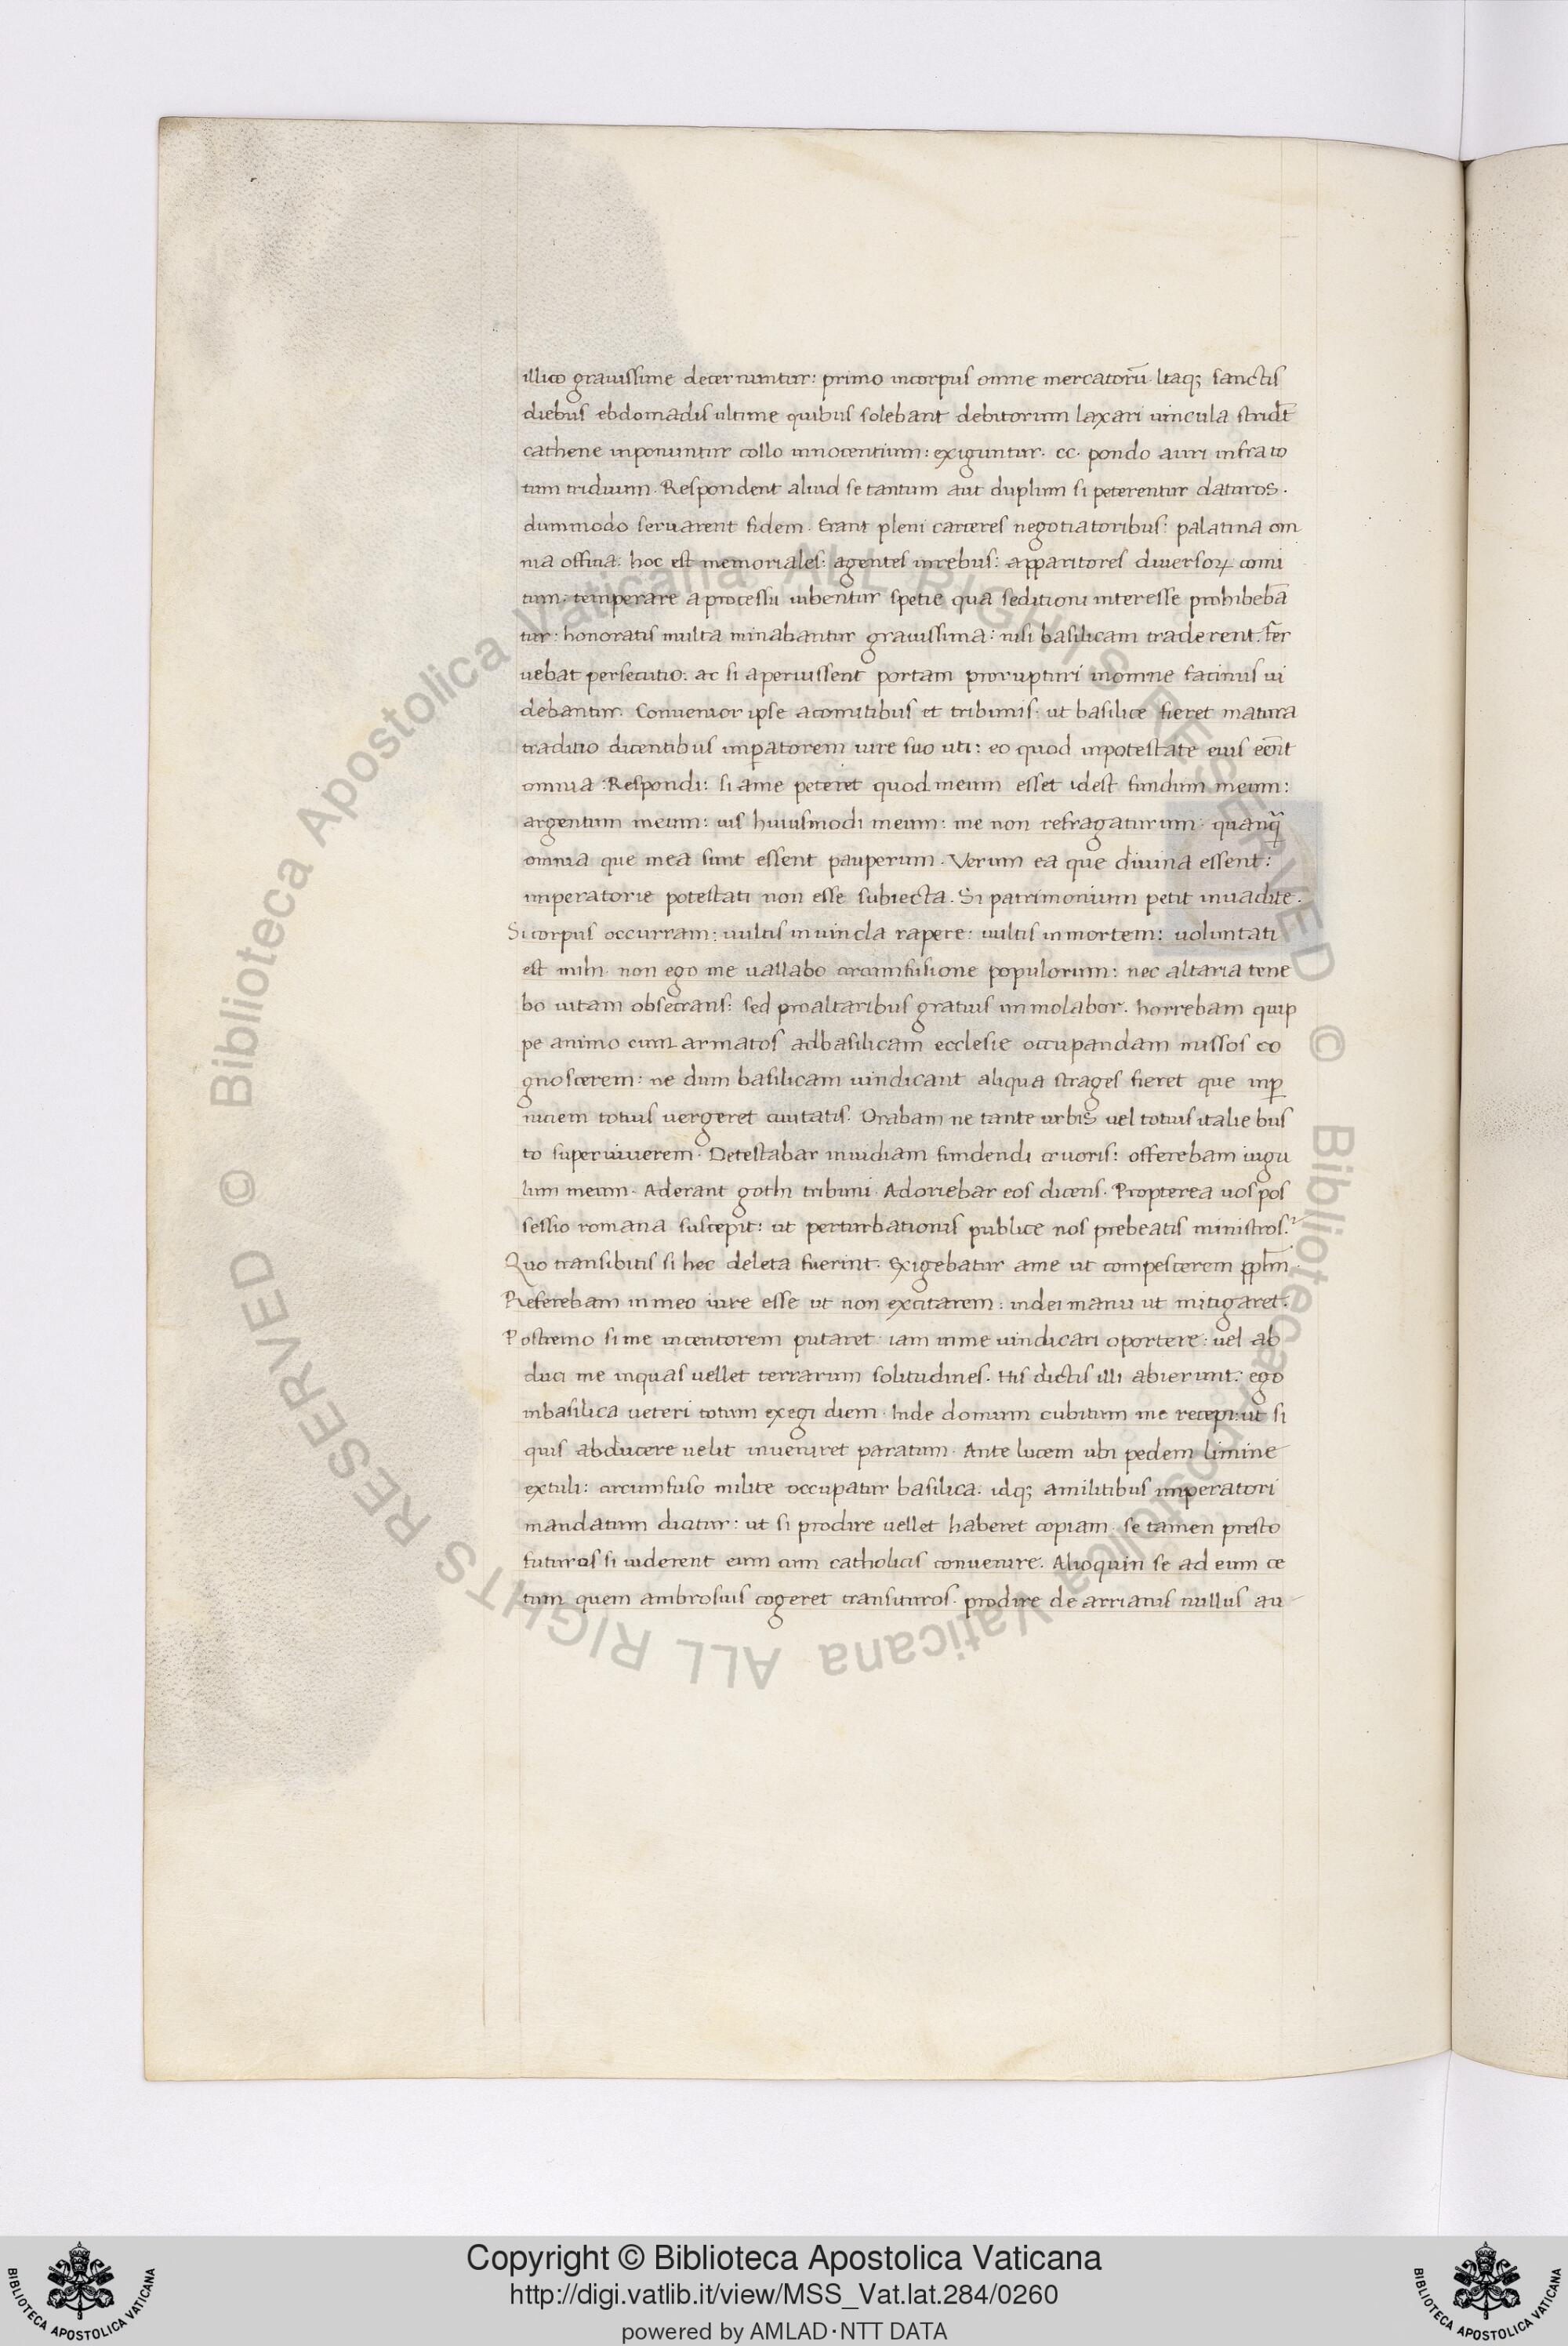 illico grauissime decernuntur: primo incorpus omne mercatorū. Itaq; sanctis
diebus ebdomadis ultime quibus solebant debitorum laxari uincula stridēt
cathene inponuntur collo innocentium: exiguntur. cc. pondo auri infra to
tum triduum. Respondent aliud se tantum aut duplum si peterentur daturos.
dummodo seruarent fidem. Erant pleni carceres negotiatoribus: palatina om
nia officia: hoc est memoriales: agentes inrebus: apparitores diuersoꝝ comi
tum: temperare aprocessu iubentur spetie qua seditioni interesse prohibebā
tur: honoratis multa minabantur grauissima: nisi basilicam traderent. fer
uebat persecutio. ac si aperuissent portam prorupturi inomne facinus ui
debantur. Conuenior ipse acomitibus et tribunis: ut basilice fieret matura
traditio dicentibus imꝑatorem iure suo uti: eo quod inpotestate eius eēnt
omnia: Respondi: si ame peteret quod meum esset idest fundum meum:
argentum meum: uis huiusmodi meum: me non refragaturum. quanq̃
omnia que mea sunt essent pauperum. Verum ea que diuina essent:
imperatorie potestati non esse subiecta. Si patrimonium petit inuadite.
Si corpus occurram: uultis inuincla rapere: uultis inmortem: uoluntati
est mihi. non ego me uallabo circumfusione populorum: nec altaria tene
bo uitam obsecrans: sed proaltaribus gratius immolabor. horrebam quip
pe animo cum armatos adbasilicam ecclesie occupandam missos co
gnoscerem: ne dum basilicam uindicant aliqua strages fieret que inꝑ
niciem totius uergeret ciuitatis. Orabam ne tante urbis uel totius italie bus
to superuiuerem. Detestabar inuidiam fundendi cruoris: offerebam iugu
lum meum. Aderant gothi tribuni. Adoriebar eos dicens. Propterea uos pos
sessio romana suscepit: ut perturbationis publice nos prebeatis ministros?
Quo transibitis si hec deleta fuerint. Exigebatur ame ut compescerem pplm̄.
Referebam inmeo iure esse ut non excitarem: indei manu ut mitigaret.
Postremo si me incentorem putaret iam inme uindicari oportere: uel ab
duci me inquas uellet terrarum solitudines. His dictis illi abierunt. ego
inbasilica ueteri totum exegi diem. Inde domum cubitum me recepi: ut si
quis abducere uelit inueniret paratum. Ante lucem ubi pedem limine
extuli: circumfuso milite occupatur basilica. idq; amilitibus imperatori
mandatum dicitur: ut si prodire uellet haberet copiam. se tamen presto
futuros si uiderent eum cum catholicis conuenire. Alioquin se ad eum ce
tum quem ambrosius cogeret transituros. prodire de arrianis nullus au
© Biblioteca Apostolica Vaticana ALL RIGHTS RESERVED
© Biblioteca Apostolica Vaticana ALL RIGHTS RESERVED
Copyright © Biblioteca Apostolica Vaticana
http://digi.vatlib.it/view/MSS_Vat.lat.284/0260
powered by AMLAD·NTT DATA
BIBLIOTECA APOSTOLICA VATICANA
BIBLIOTECA APOSTOLICA VATICANA